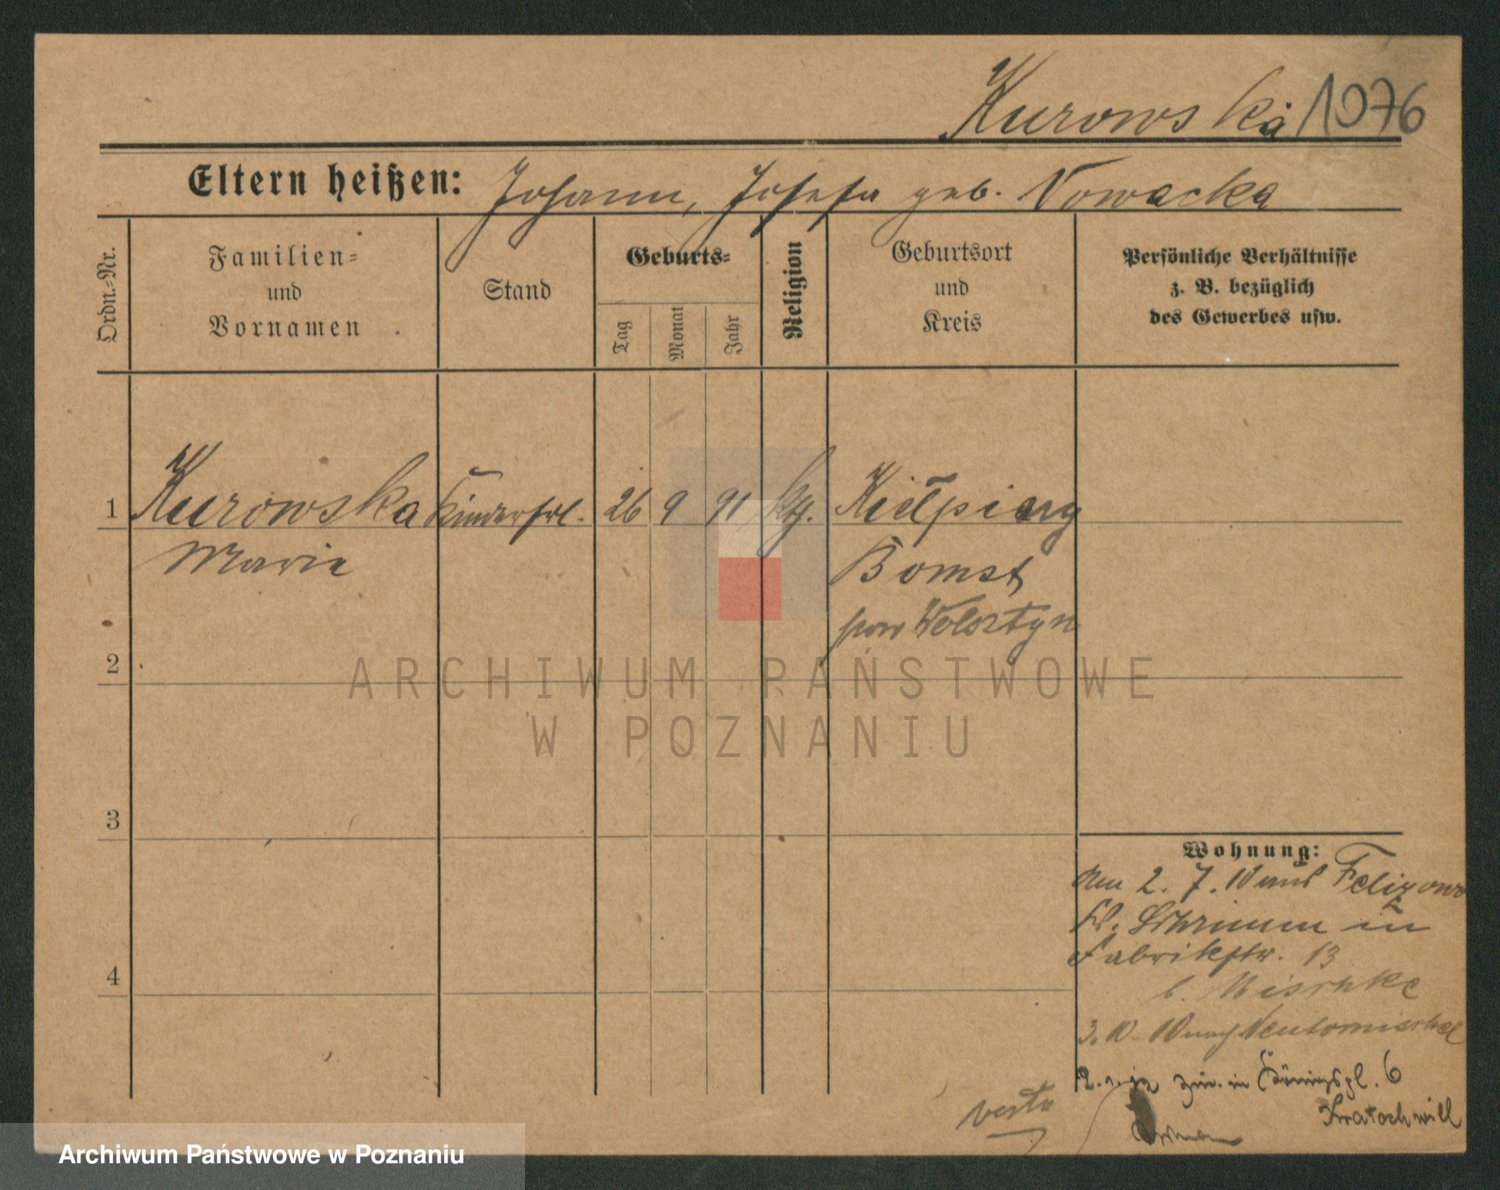 Kurowska 1076
Eltern heißen: Johann, Josefa geb. Nowacka
Ordn.-Nr.
Familien-
und
Vornamen
Stand
Geburts-
Tag
Monat
Jahr
Religion
Geburtsort
und
Kreis
Persönliche Verhältnisse
z. B. bezüglich
des Gewerbes usw.
1 Kurowska Kinderfrl. 26 9 91 kth. Kiełpiny
Marie Bomst
pow Wolsztyn
2
ARCHIWUM PAŃSTWOWE
W POZNANIU
3
Wohnung:
Am 2. 7. 10 aus Felizowo
Kr. Schrimm in
Fabrikstr. 13
b. Nischke
3. 10. 10 nach Neutomischel
zur. in Königspl. 6
Kratochwill
verte
Archiwum Państwowe w Poznaniu